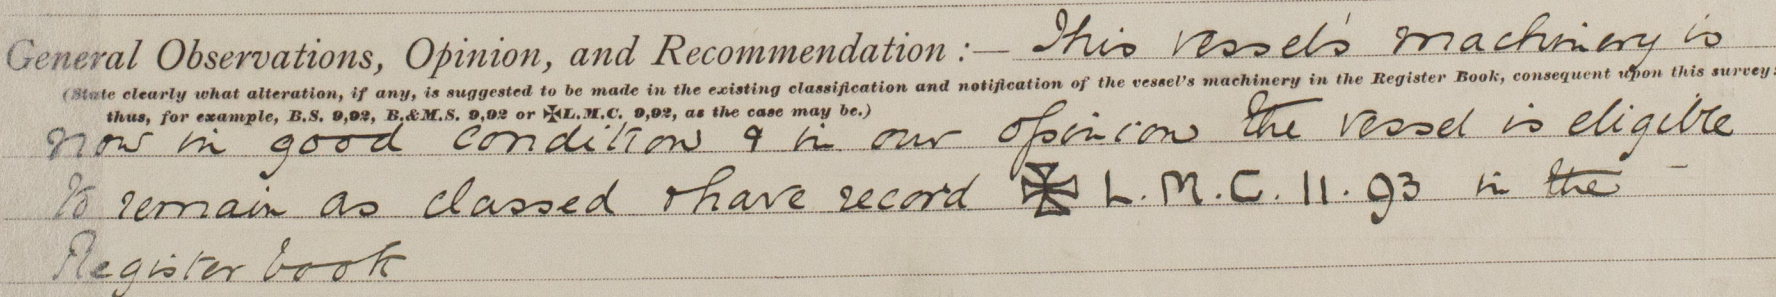 General Observations, Opinion, and Recommendation :— This vessel's machinery is
(State clearly what alteration, if any, is suggested to be made in the existing classification and notification of the vessel's machinery in the Register Book, consequent upon this survey:
thus, for example, B.S. 9,92, B.&M.S. 9,92 or ✠L.M.C. 9,92, as the case may be.)
now in good condition & in our opinion the vessel is eligible
to remain as classed & have record ✠ L.M.C. 11.93 in the
Register book